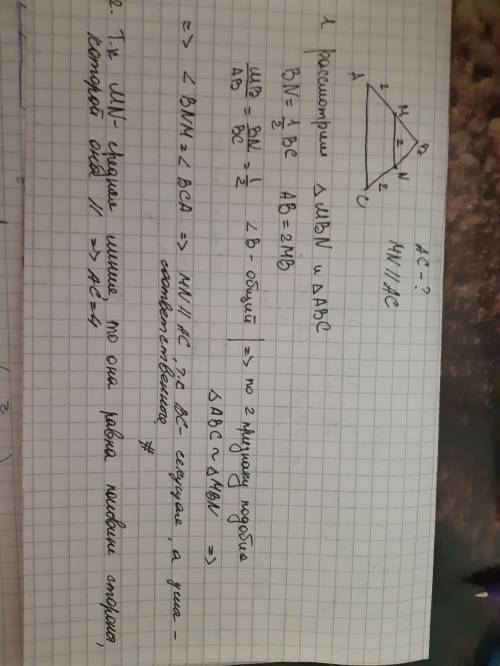 A 2 M B
2
N 2 C
AC - ?
MN || AC
1 рассмотрим △ MBN и △ABC
BN = 1/2 BC AB = 2MB
MB/AB = BN/BC = 1/2 ∠B - общий | => по 2 признаку подобие
△ABC ~ △MBN =>
=> ∠ BNM = ∠ BCA => MN || AC, т.к BC - секущая, а углы -
соответственного #
2. Т.к MN - средняя линия, то она равна половине стороны,
которой она || => AC = 4